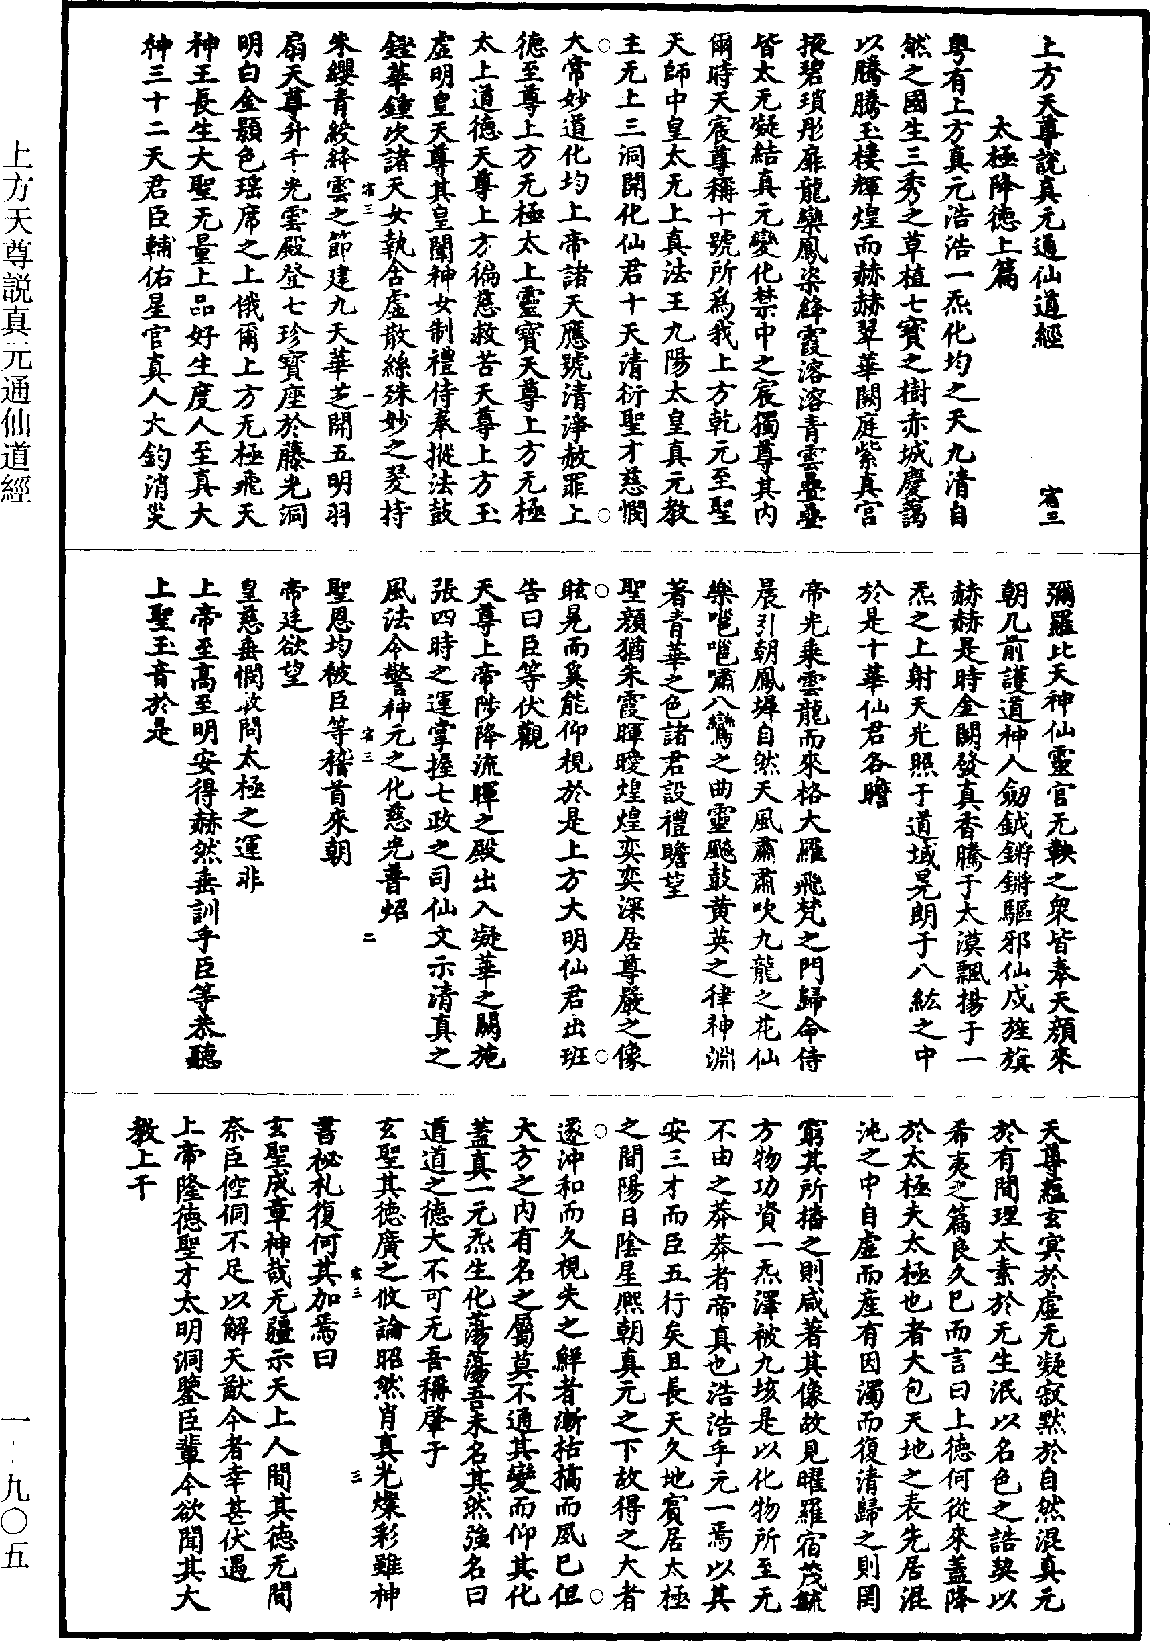 上方天尊說真元通仙道經 宿三
太極降德上篇
粵有上方真元浩浩一炁化均之天九清自
然之國生三秀之草植七寶之樹赤城慶靄
以騰騰玉樓輝煌而赫赫翠華闕庭紫真官
掖碧瑣彤扉龍欒鳳梁絳霞溶溶青雲疊疊
皆太元凝結真元變化禁中之宸獨尊其內
爾時天宸尊稱十號所為我上方乾元至聖
天師中皇太无上真法王九陽太皇真元教
主无上三洞開化仙君十天清衍聖才慈憫
大常妙道化均上帝諸天應號清淨赦罪上
德至尊上方无極太上靈寶天尊上方无極
太上道德天尊上方徧慈救苦天尊上方玉
虛明皇天尊其皇闈神女制禮侍奉摐法鼓
鏗華鍾次諸天女執舍虛散絲殊妙之翣持
宿三 一
朱纓青綬絳雲之節建九天華芝開五明羽
扇天尊升千光雲殿登七珍寶座於藤光洞
明白金顥色瑤席之上俄爾上方无極飛天
神王長生大聖无量上品好生度人至真大
神三十二天君臣輔佑星官真人大鈞消災
彌羅比天神仙靈官无鞅之眾皆奉天顏來
朝几前護道神人劒鉞鏘鏘驅邪仙戍旌旗
赫赫是時金闕發真香騰于太漠飄揚于一
炁之上射天光照于道域晃朗于八紘之中
於是十華仙君各瞻
帝光乘雲龍而來格大羅飛梵之門歸命侍
晨引朝鳳墀自然天風肅肅吹九龍之花仙
樂嗈嗈嘯八鸞之曲靈颷鼓黃英之律神淵
著青華之色諸君設禮瞻望
聖顏猶朱霞暉曖煌煌奕奕深居尊嚴之像
眩晃而奚能仰視於是上方大明仙君出班
告曰臣等伏觀
天尊上帝陟降流暉之殿出入凝華之闕施
張四時之運掌握七政之司仙文示清真之
風法令警神元之化慈光普炤
宿三 二
聖恩均被臣等稽首來朝
帝廷欲望
皇慈垂憫敢問太極之運非
上帝至高至明安得赫然垂訓乎臣等恭聽
上聖玉音於是
天尊蘊玄寞於虛无凝寂默於自然混真元
於有間理太素於无生泯以名色之誥契以
希夷之篇良久已而言曰上德何從來蓋降
於太極夫太極也者大包天地之表先居混
沌之中自虛而產有因濁而復清歸之則罔
窮其所播之則咸著其像故見曜羅宿茂毓
方物功資一炁澤被九垓是以化物所至无
不由之莽莽者帝真也浩浩乎元一焉以其
安三才而臣五行矣且長天久地賓居太極
之間陽日陰星熙朝真元之下故得之大者
邃沖和而久視失之鮮者漸枯槁而夙已但
大方之內有名之屬莫不通其變而仰其化
蓋真一元炁生化蕩蕩吾未名其然強名曰
道道之德大不可无吾稱肇于
玄聖其德廣之攸論昭然肖真光燦彩雖神
宿三 三
書祕札復何其加焉曰
玄聖成章神哉无疆示天上人間其德无間
奈臣倥侗不足以解天猷今者幸甚伏遇
上帝隆德聖才太明洞鑒臣輩今欲聞其大
教上干
上方天尊說真元通仙道經
一--九〇五